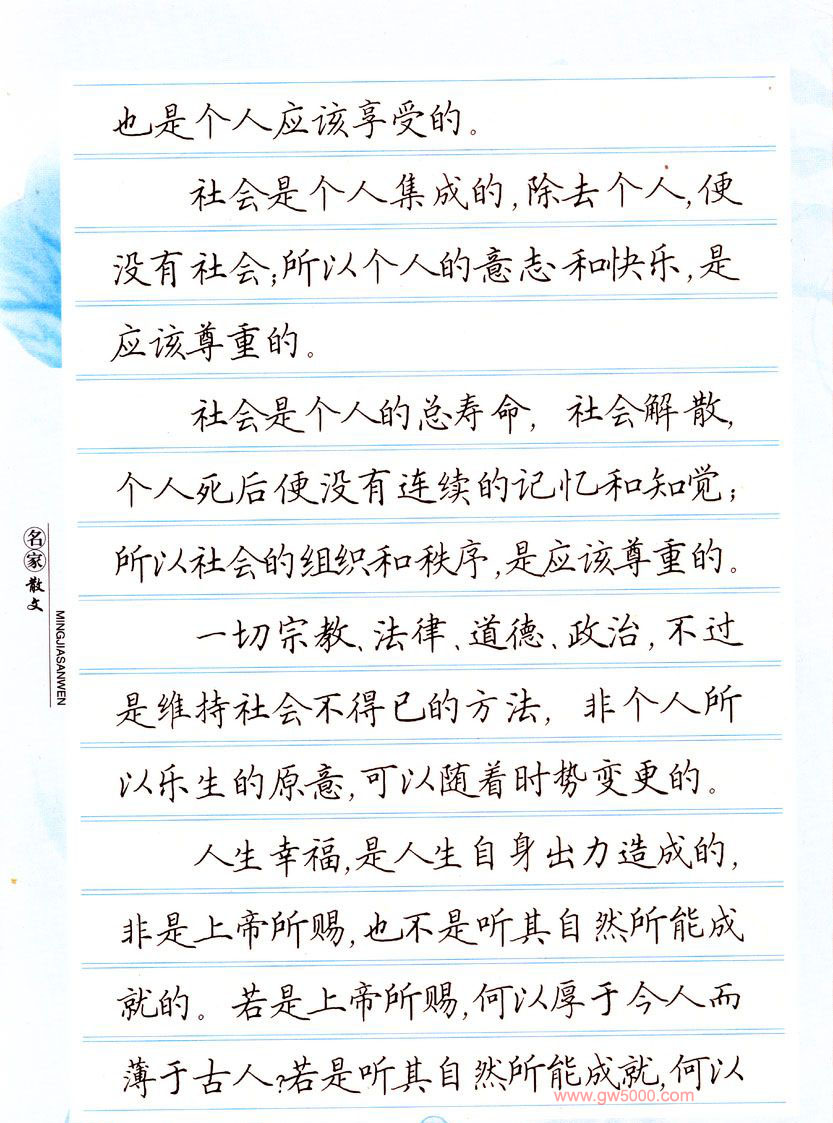 也是个人应该享受的。
社会是个人集成的,除去个人,便
没有社会;所以个人的意志和快乐,是
应该尊重的。
社会是个人的总寿命, 社会解散,
个人死后便没有连续的记忆和知觉;
所以社会的组织和秩序,是应该尊重的。
一切宗教、法律、道德、政治,不过
是维持社会不得已的方法, 非个人所
以乐生的原意,可以随着时势变更的。
人生幸福,是人生自身出力造成的,
非是上帝所赐,也不是听其自然所能成
就的。若是上帝所赐,何以厚于今人而
薄于古人?若是听其自然所能成就,何以
名家散文
MINGJIASANWEN
www.gw5000.com